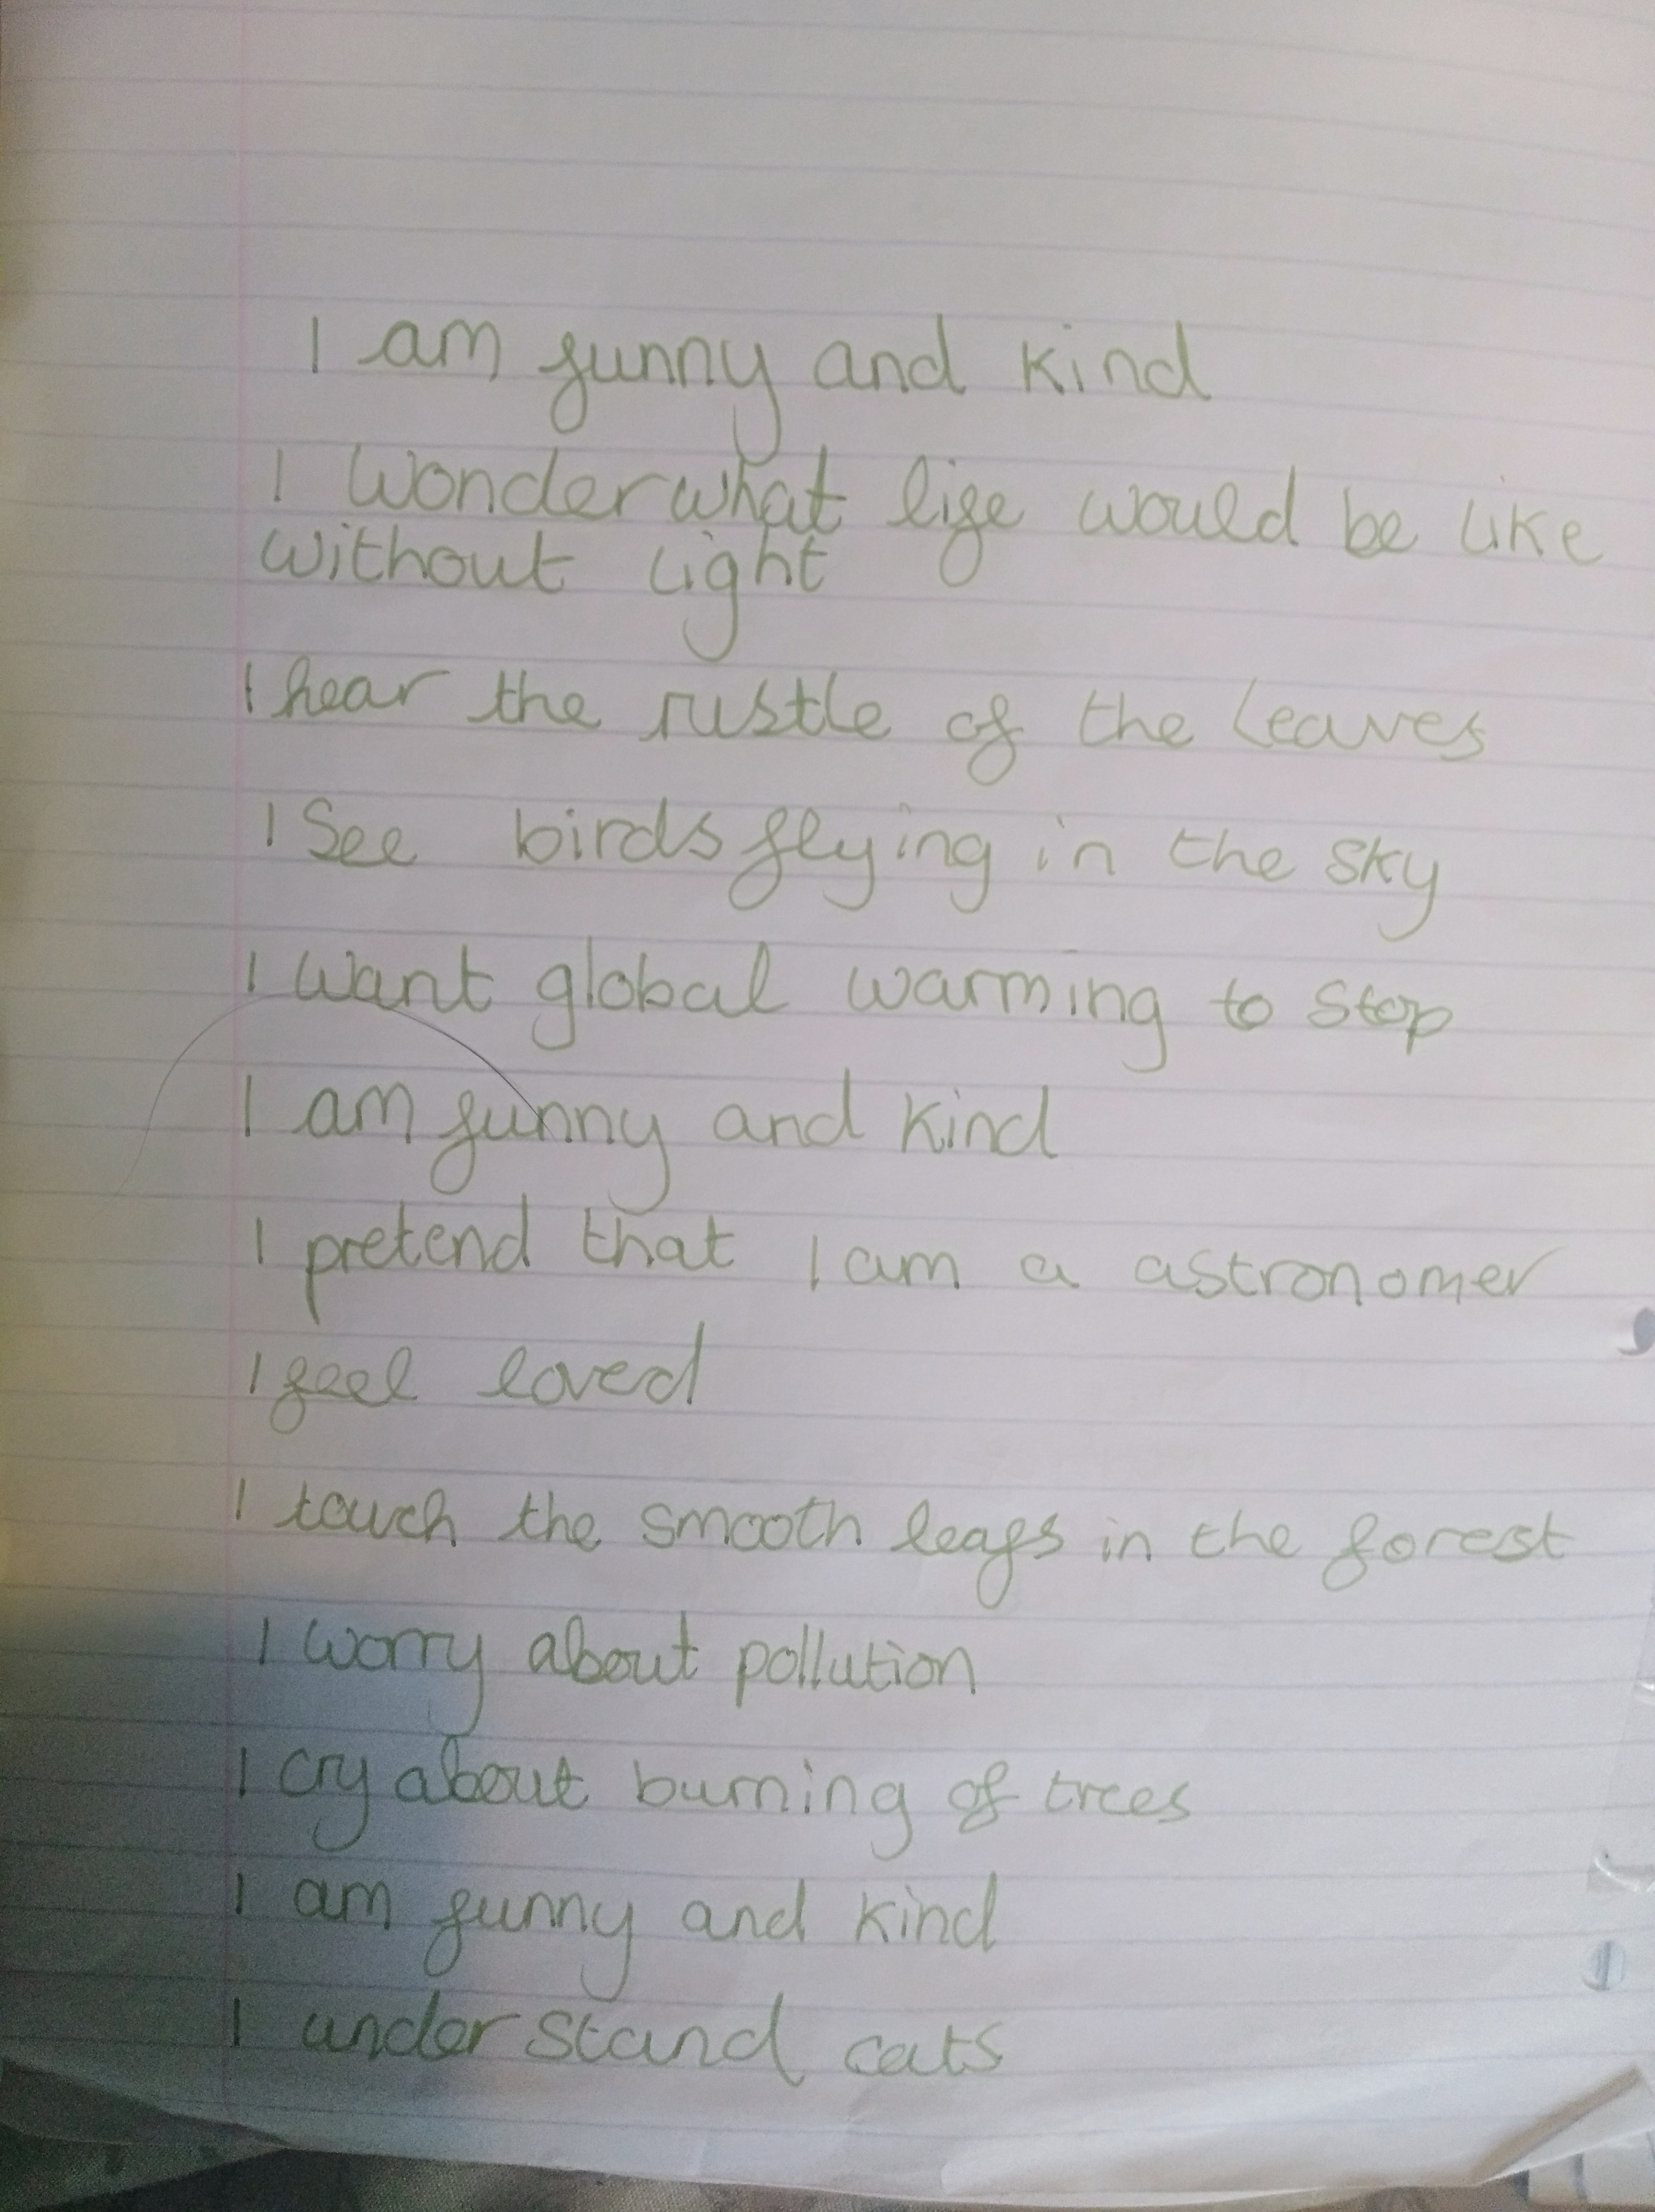 I am funny and kind
I wonder what life would be like
without light
I hear the rustle of the leaves
I see birds flying in the sky
I want global warming to stop
I am funny and kind
I pretend that I am a astronomer
I feel loved
I touch the smooth leafs in the forest
I worry about pollution
I cry about burning of trees
I am funny and kind
I understand cats